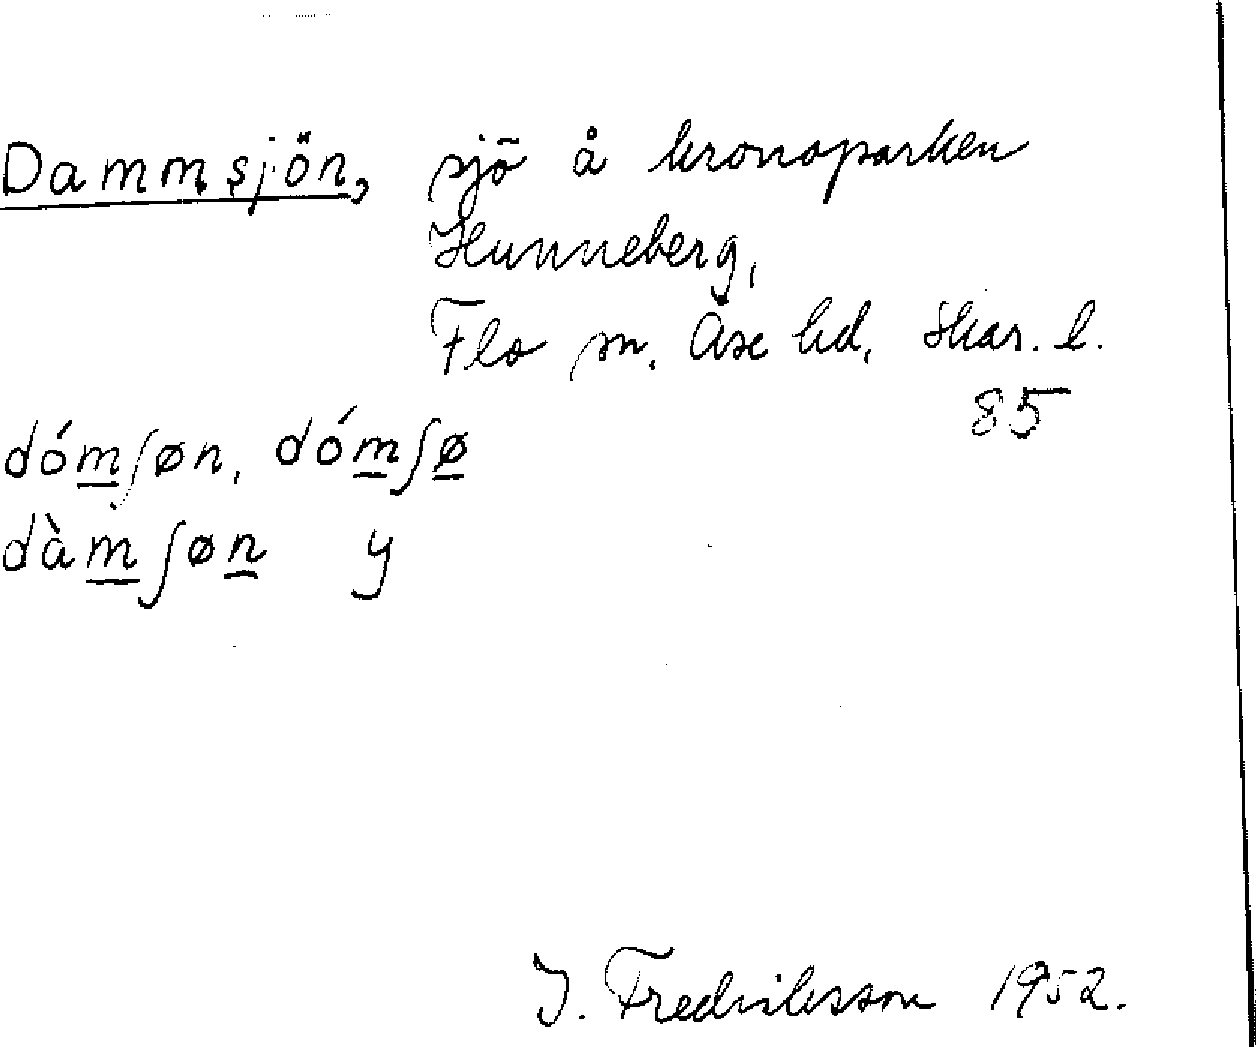 Dammsjön, sjö å kronoparken
Hunneberg,
Flo sn. Åse hd, Skar. l.
85
dómʃøn, dómʃø
dàmʃøn y
J. Fredriksson 1952.